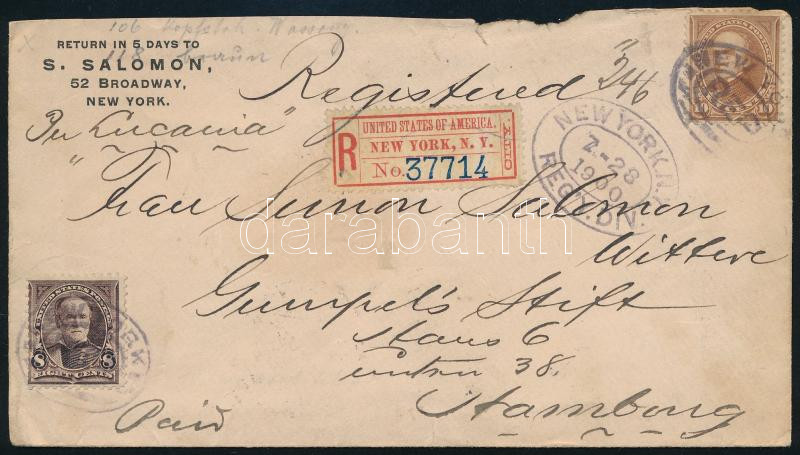 106
118 braun
RETURN IN 5 DAYS TO
S. SALOMON,
52 BROADWAY,
NEW YORK.
Registered
"Per Lucania"
UNITED STATES OF AMERICA.
R NEW YORK, N. Y.
No. 37714
NEW YORK, N.Y.
2-28
1900
REG'Y. DIV.
Frau Simon Salomon
Wittwe
Gumpel's Stift
Haus 6
38.
Hamburg
Paid
UNITED STATES POSTAGE
10 10
UNITED STATES POSTAGE
8 8
EIGHT CENTS
darabanth